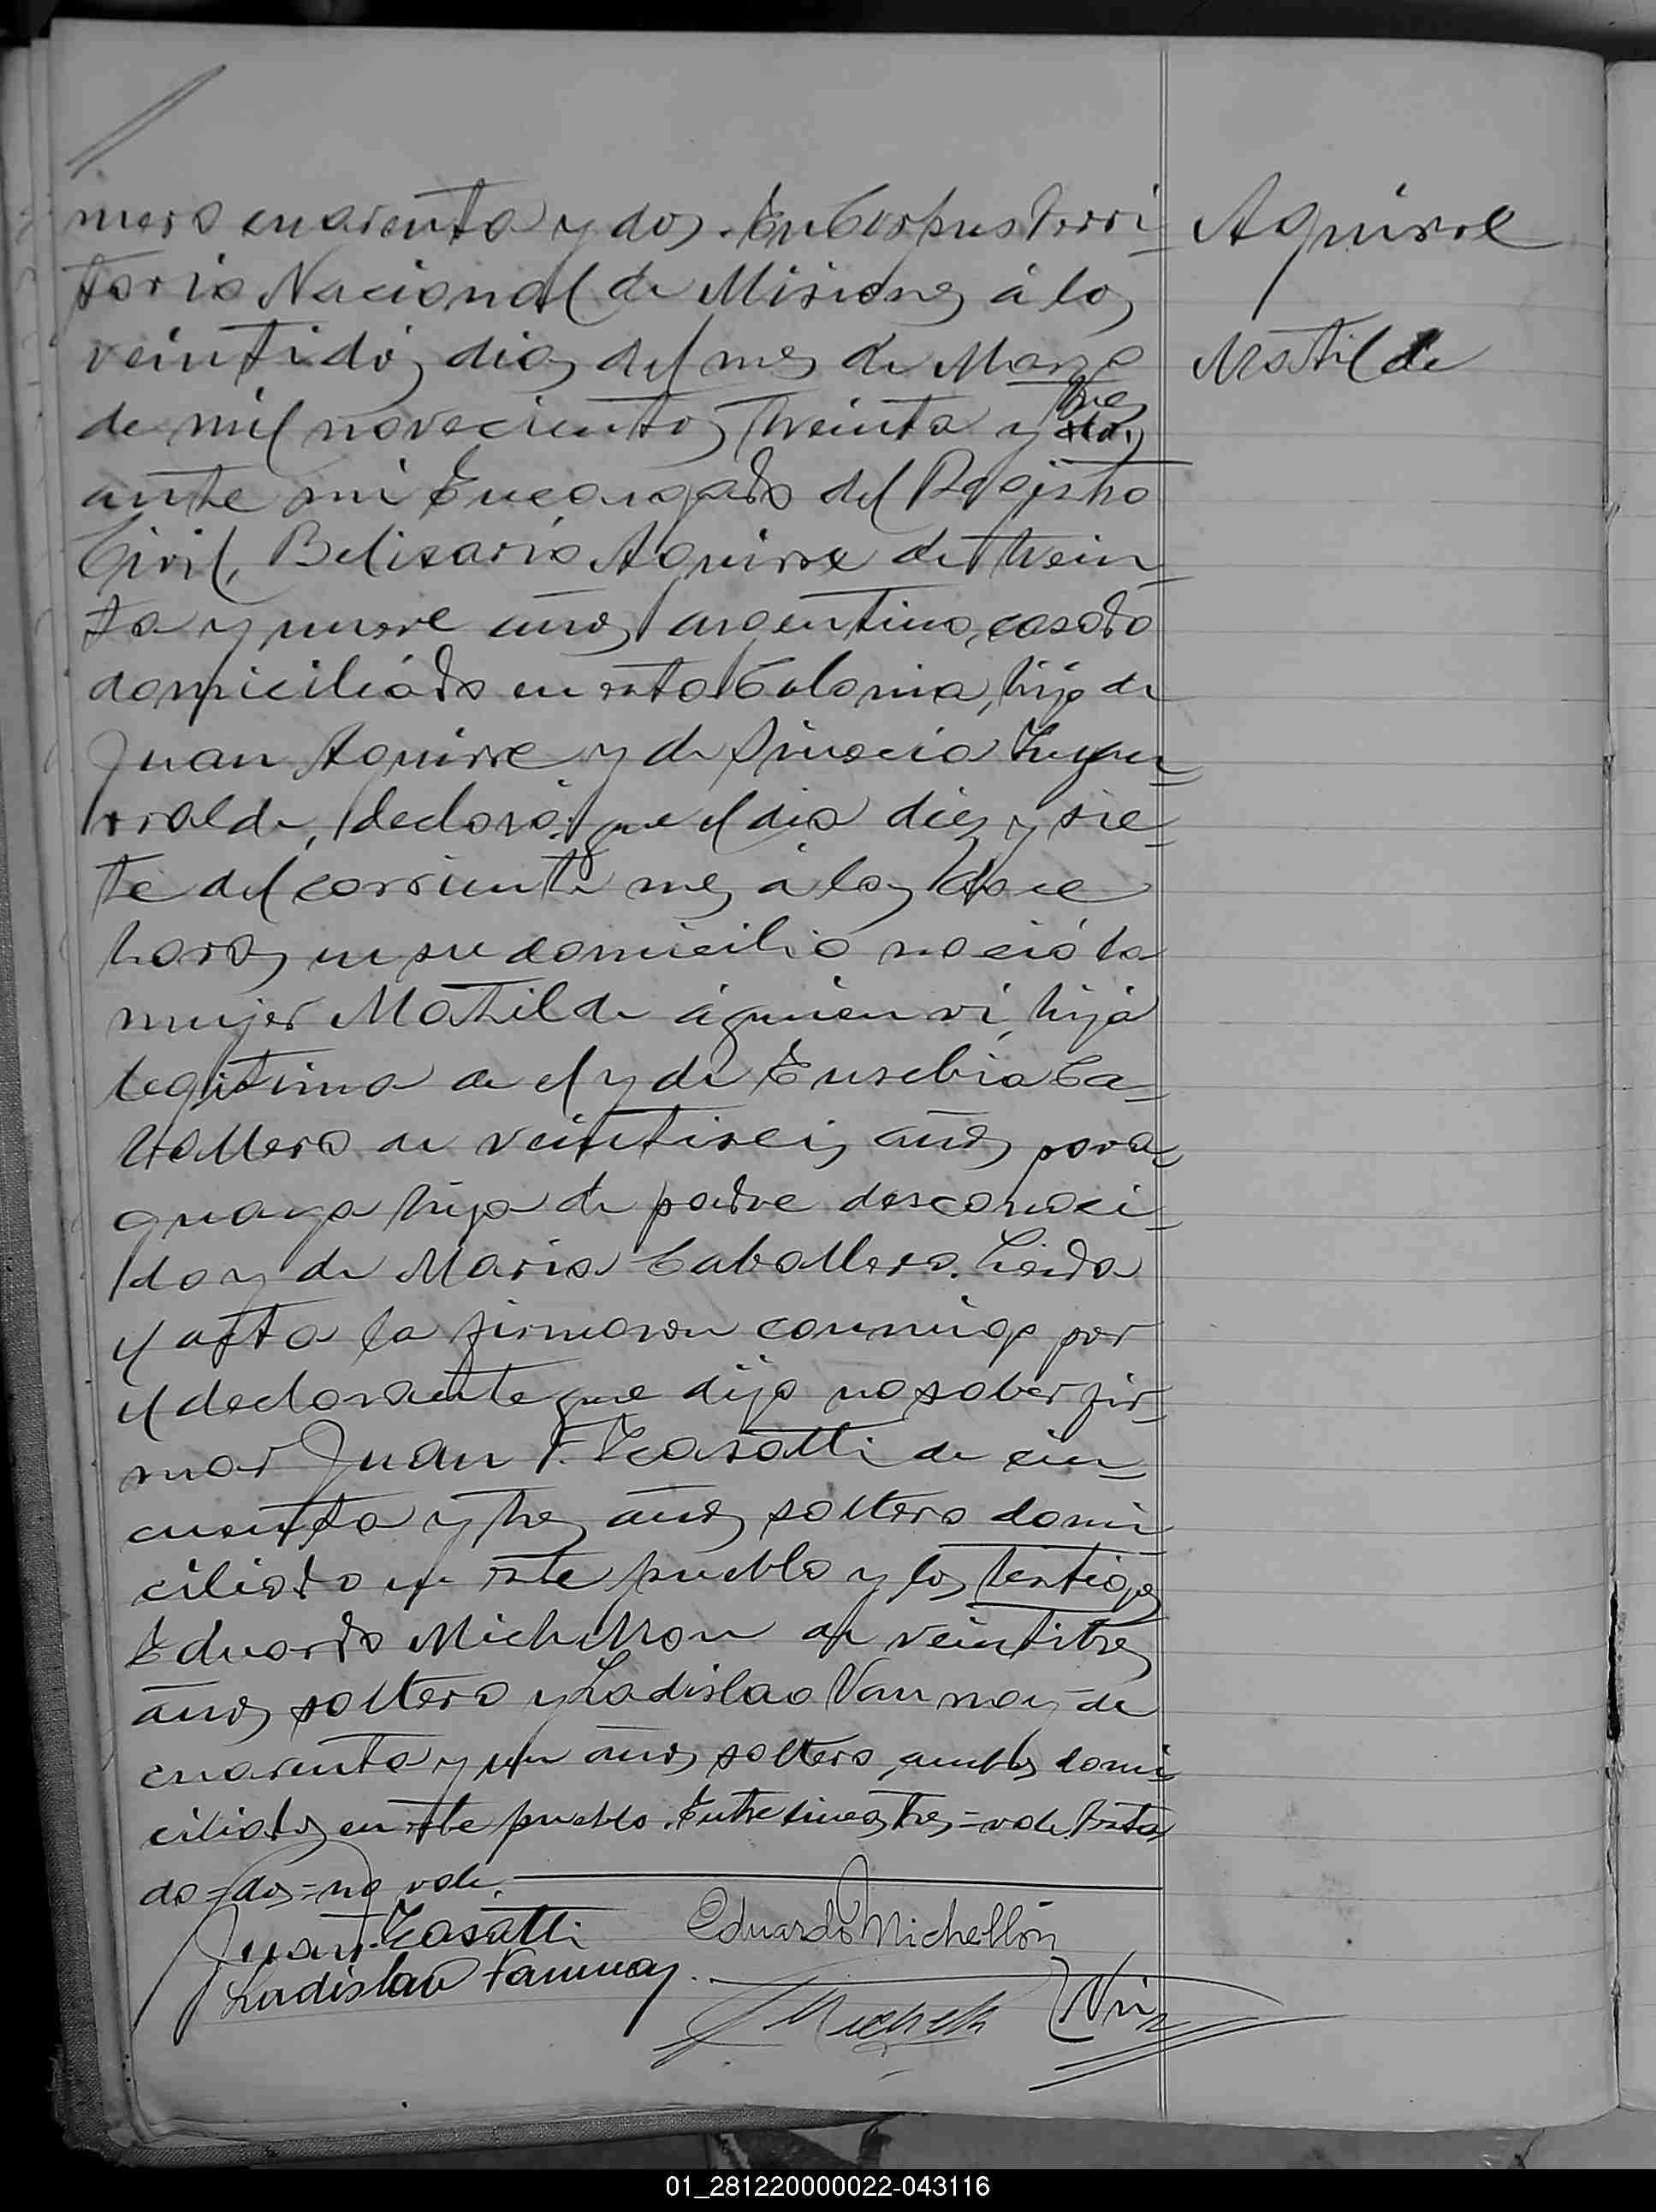 mero cuarenta y dos. En Corpus Terri-
torio Nacional de Misiones á los
veintidós dias del mes de Marzo
tres
de mil novecientos treinta y dos
ante mi Encargado del Registro
Civil, Belisario Aguirre de trein-
ta y nueve años argentino, casado
domiciliado en esta Colonia, hijo de
Juan Aguirre y de
rralde, declaró: que el dia diez y sie-
te del corriente mes á las doce
horas en su domicilio nació la
mujer Matilde á quien vi, hija
legitima de el y de Eusebia Ca-
ballero de veintiseis años para-
guaya hija de padre desconoci-
do y de Maria Caballero. Leida
el acta la firmaron conmigo por
el declarante que dijo no saber fir-
mar Juan F. Casatti de cin-
cuenta y tres años soltero domi
ciliado en este pueblo y los testigos
Eduardo Michellon de veintitres
años soltero y Ladislao Vannay de
cuarenta y un años soltero, ambos domi-
ciliados en este pueblo. Entre lineas tres = vale Testa
do = dos = no vale.
Juan F. Casatti
Eduardo Michellón
Ladislao Vannay.
Aguirre
Matilde
01_281220000022-043116